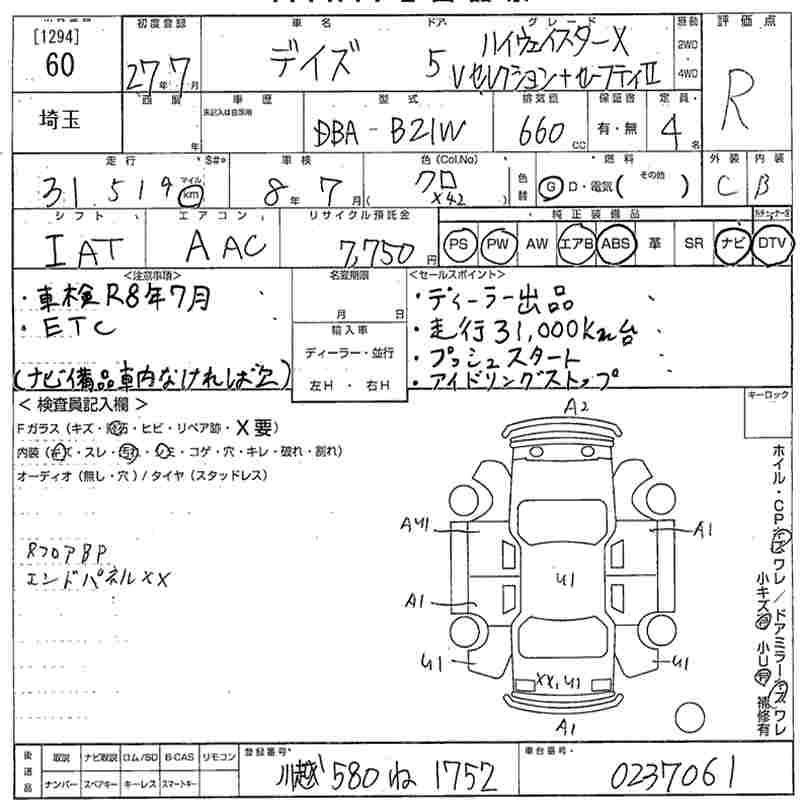 [1294]
60
埼玉
初度登録
27年7月
車名
デイズ
ドア
5
グレード
ハイウェイスターX
Vセレクション+セーフティII
駆動
2WD
4WD
評価点
R
年
車歴
未記入は自家用
型式
DBA-B21W
排気量
660cc
保証書
有・無
定員
4名
走行
31,519
マイル
km
S#*
車検
8年7月
色(Col.No)
クロ
(X42)
色替
燃料
G D・電気(その他)
外装
C
内装
B
シフト
IAT
エアコン
AAC
リサイクル預託金
7,750円
純正装備品
PS PW AW エアB ABS 革 SR ナビ
DTV
<注意事項>
・車検R8年7月
・ETC
(ナビ備品車内なければ欠)
名変期限
月 日
輸入車
ディーラー・並行
左H・右H
<セールスポイント>
・ディーラー出品
・走行31,000km台
・プッシュスタート
・アイドリングストップ
<検査員記入欄>
Fガラス(キズ・飛石・ヒビ・リペア跡・X要)
内装(キズ・スレ・汚れ・シミ・コゲ・穴・キレ・破れ・割れ)
オーディオ(無し・穴)/タイヤ(スタッドレス)
RフロアBP
エンドパネルXX
キーロック
A2
AU1
A1
U1
A1
U1
U1
XX,U1
A1
ホイル・CPキズワレ/ドアミラーキズワレ
小キズ有 小U有 補修有
後送品
取説 ナビ取説 ロム/SD B-CAS リモコン
ナンバー スペアキー キーレス スマートキー
登録番号
川越 580 ね 1752
車台番号
0237061